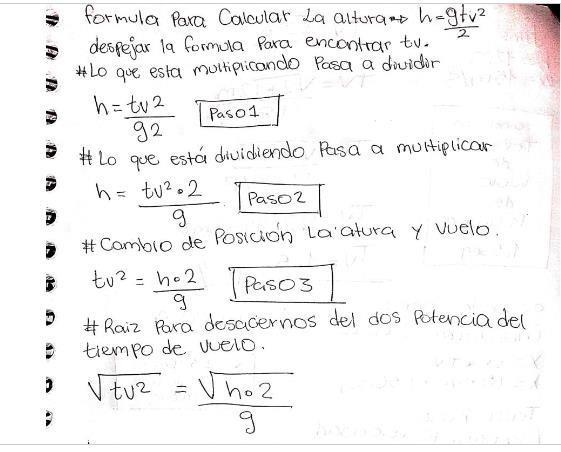 formula Para Calcular La altura→ h=gtv²/2
despejar la formula Para encontrar tv.
#Lo que esta multiplicando Pasa a dividir
h=tv²/g2 Paso1
#Lo que está dividiendo Pasa a multiplicar
h= tv²•2/g Paso2
#Cambio de Posición La atura y vuelo.
tv² = h•2/g Paso3
#Raiz Para desacernos del dos Potencia del
tiempo de vuelo.
√tv² = √h•2/g